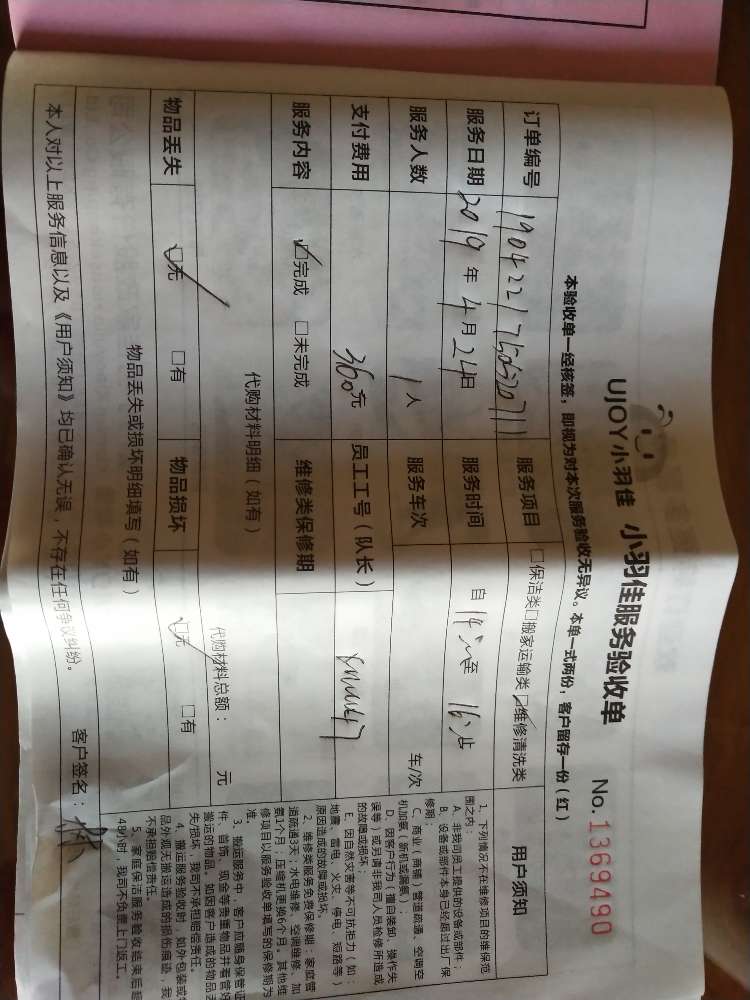 UJOY小羽佳 小羽佳服务验收单 No.1369490
本验收单一经核签，即视为对本次服务验收无异议。本单一式两份，客户留存一份（红）
订单编号 服务项目 □保洁类□搬家运输类☑维修清洗类 用户须知
服务日期 2019年4月24日 服务时间 自14:~至16:止
服务人数 1人 服务车次 车/次
支付费用 360元 员工工号（队长）
服务内容 ☑完成 □未完成 维修类保修期
代购材料明细（如有） 代购材料总额： 元
物品丢失 ☑无 □有 物品损坏 ☑无 □有
物品丢失或损坏明细填写（如有）
本人对以上服务信息以及《用户须知》均已确认无误，不存在任何争议纠纷。 客户签名：
1、下列情况不在维修项目的维保范
围之内：
A、非我司员工提供的设备或部件；
B、设备或部件本身已经超过出厂保
修期；
C、商业（商铺）管道疏通、空调空
机加氨（新机或漏氨）；
D、因客户行为（擅自装卸、操作失
误等）或另请非我司人员检修所造成
的故障或损坏；
E、因自然灾害等不可抗拒力（如：
地震、雷电、火灾、停电、短路等）
原因造成的故障或损坏。
2、维修类服务免费保修期：家庭管
道疏通3天；水电维修、空调维修、加
氨1个月；压缩机更换6个月。其他维
修项目以服务验收单填写的保修期为
准。
3、搬运服务中，客户应随身保管证
件、首饰、现金等贵重物品并看管好
搬运的物品。如因客户造成的物品丢
失/损坏，我司不承担赔偿责任。
4、搬运服务验收时，如外包装或物
品外观无搬运造成的损伤痕迹，我
不承担赔偿责任。
5、家庭保洁服务验收结束后超
48小时，我司不负责上门返工。